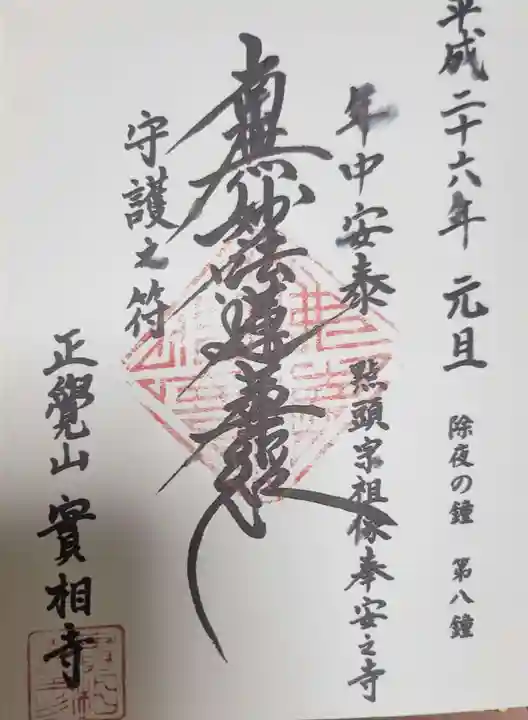 平成二十六年 元旦
除夜の鐘 第八鐘
年中安泰
點頭宗祖像奉安之寺
南無妙法蓮華経
守護之符
正覺山 實相寺